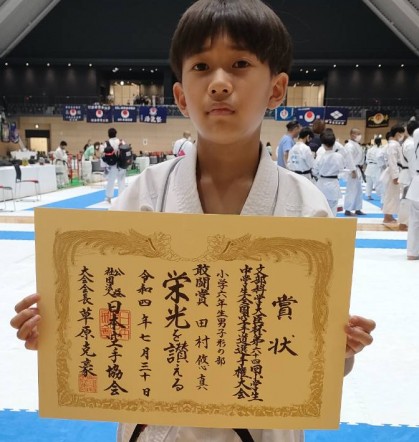 賞状
文部科学大臣杯第六十四回小学生
中学生全国空手道選手権大会
小学六年生男子形の部
敢闘賞 田村 悠真
栄光を讃える
令和四年七月三十日
公益社団法人 日本空手協会
大会会長 草原克豪